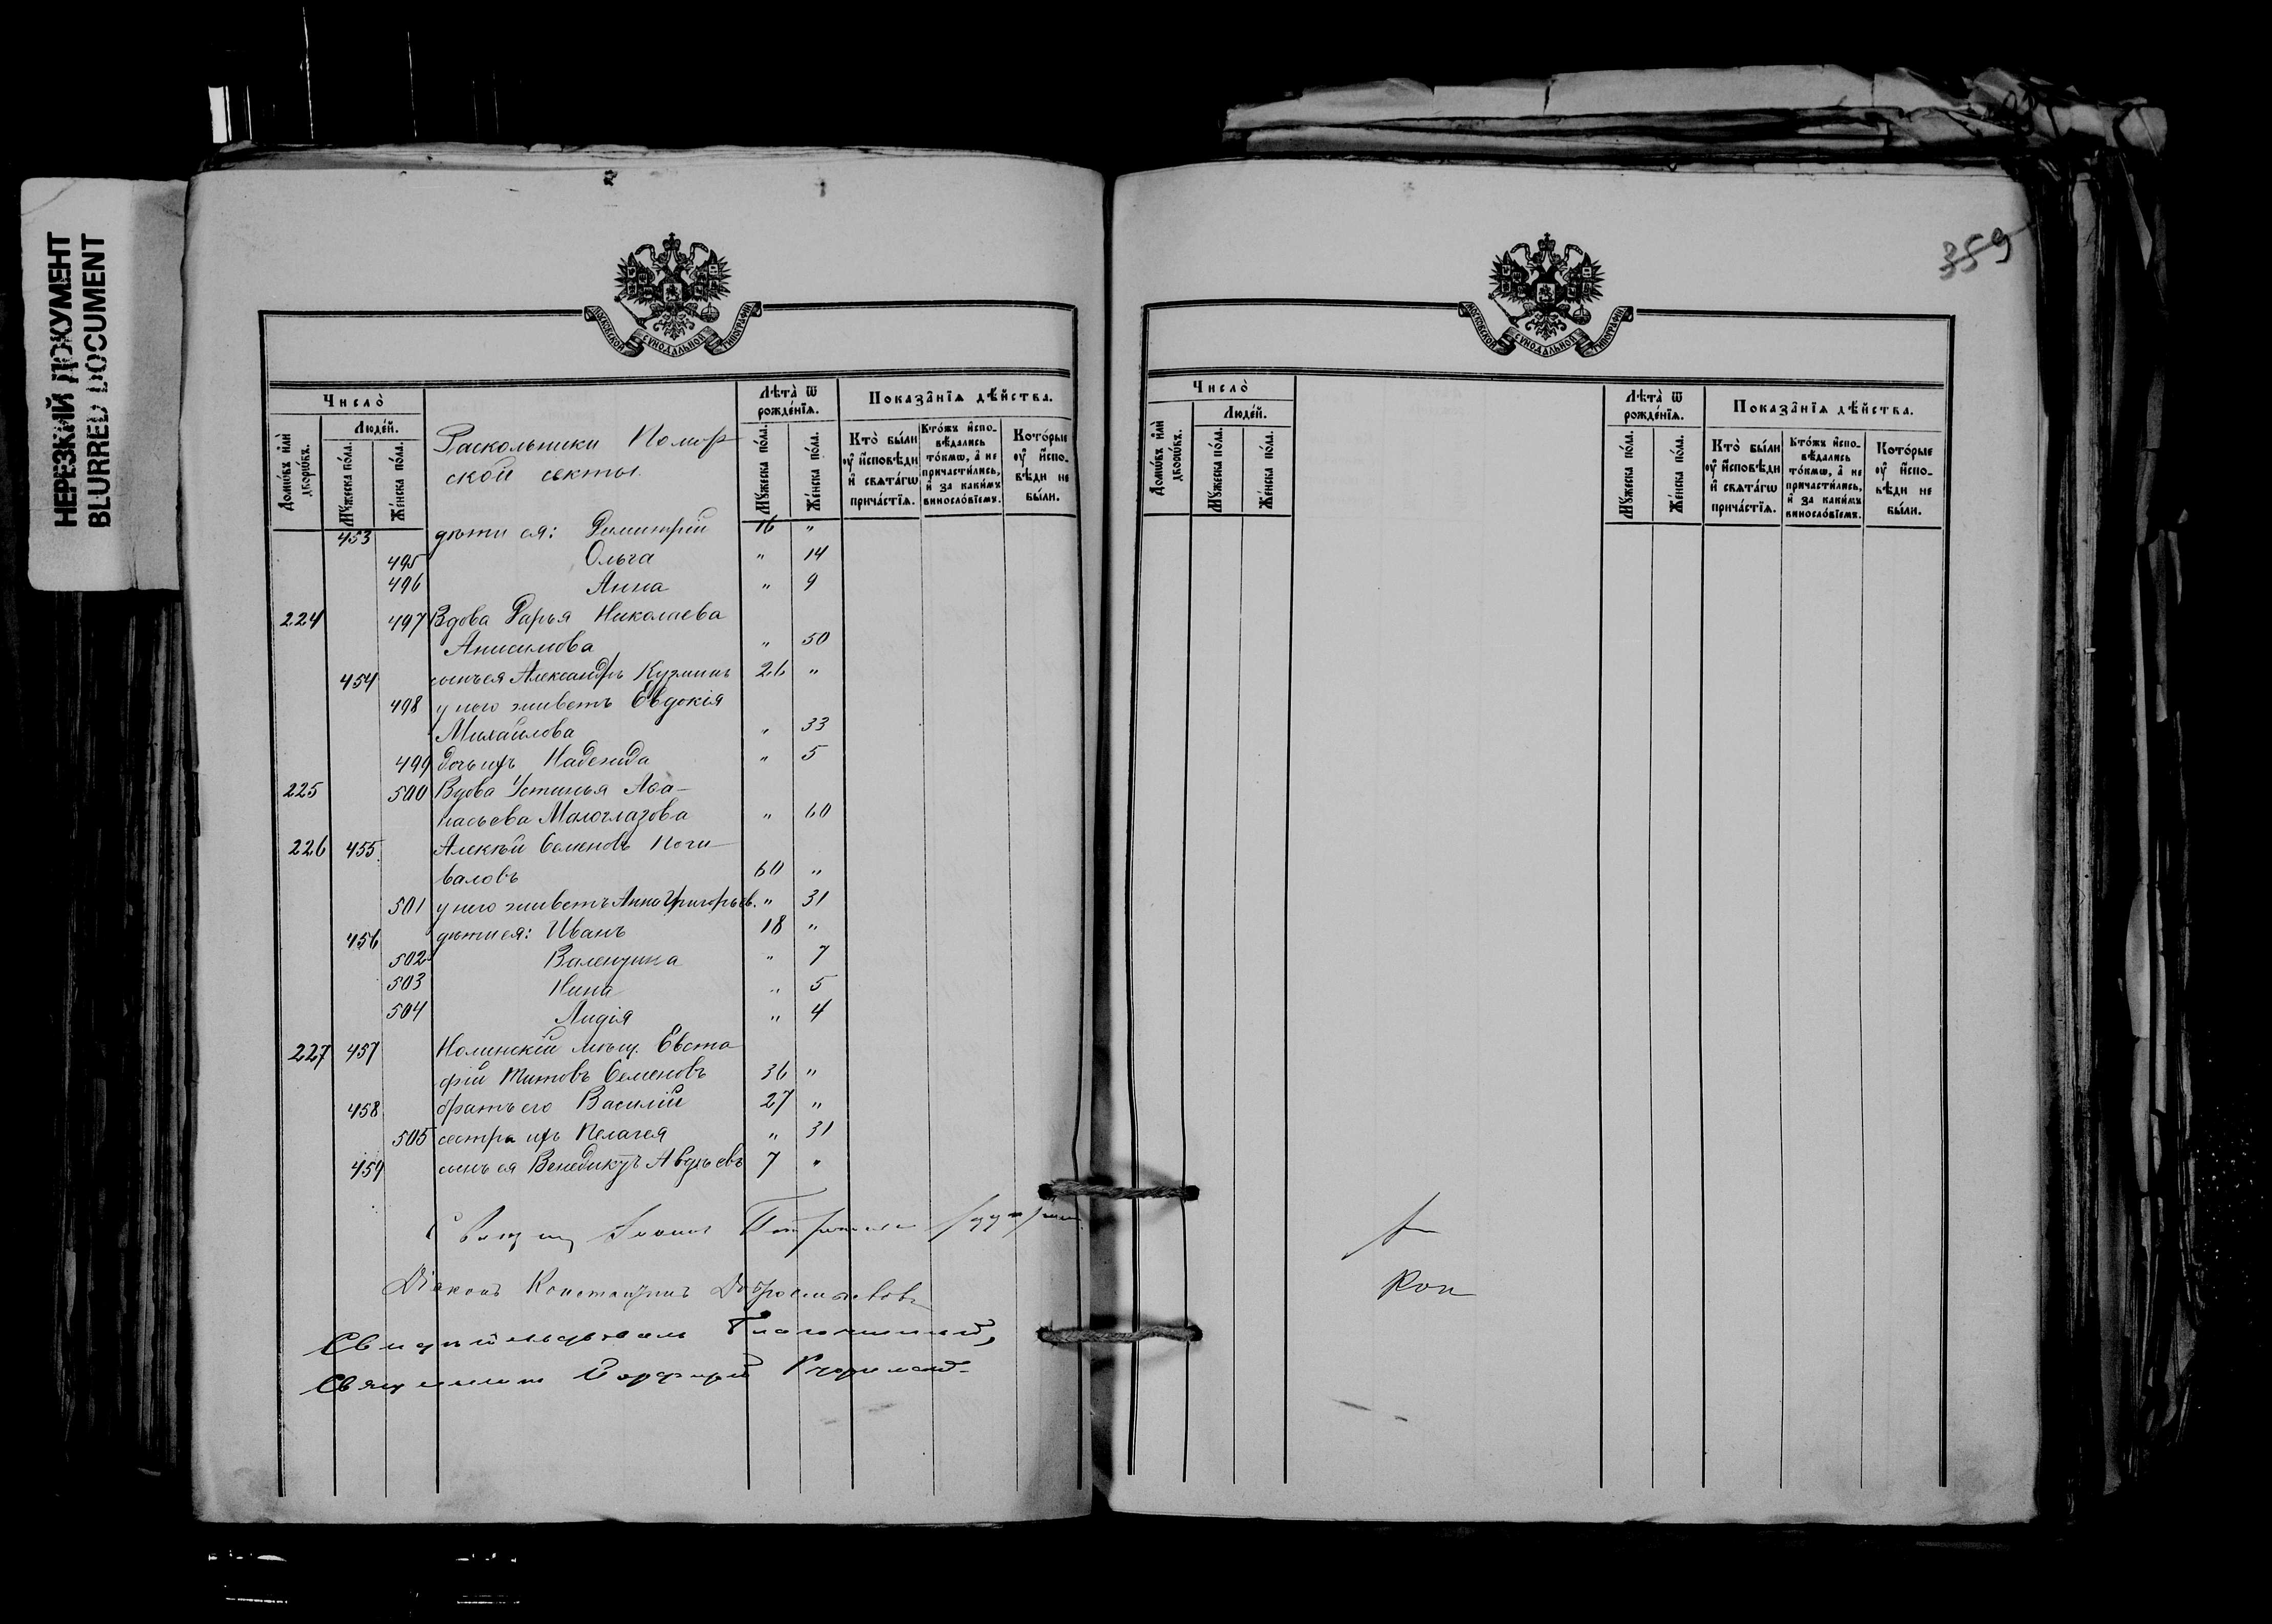 НЕРЕЗКИЙ ДОКУМЕНТ
BLURRED DOCUMENT
МОСКОВСКОЙ СѴНОДАЛЬНОЙ ТИПОГРАФІИ
Число̀
Люде́й.
Домѡ́въ и҆лѝ дворѡ́въ.
Мꙋ́жеска по́ла.
Же́нска по́ла.
Раскольники Помор
ской секты.
Лѣта̀ ѿ рожде́нїѧ.
Мꙋ́жеска по́ла.
Же́нска по́ла.
Показа̑нїѧ дѣ́йства.
Кто̀ бы́ли оу҆ и҆сповѣди и҆ свѧта́гѡ прича́стїѧ.
Кто́жъ и҆спо-вѣдались то́кмѡ, а҆ не причасти́лись, и҆ за каки́мъ винословїемъ.
Кото́рые оу҆ и҆спо-вѣди не бы́ли.
453 дѣти ея: Димитрій 16 "
495 Ольга " 14
496 Анна " 9
224 497 Вдова Дарья Николаева
Анисимова " 50
454 сынъ ея Александръ Кузминъ 26 "
498 у него живетъ Евдокія
Михайлова " 33
499 дочь ихъ Надежда " 5
225 500 Вдова Устинья Аѳа-
насьева Малоглазова " 60
226 455 Алексѣй Семеновъ Поги
валовъ 60 "
501 у него живетъ Анна Григорьев. " 31
456 дѣти ея: Иванъ 18 "
502 Валентина " 7
503 Нина " 5
504 Лидія " 4
227 457 Нолинскій мѣщ. Евста
фій Титовъ Семеновъ 36 "
458 братъ его Василій 27 "
505 сестра ихъ Пелагея " 31
459 сынъ ея Венедиктъ Авдѣевъ 7 "
Діаконъ Константинъ Добросмысловъ
Свидѣтельствовалъ Благочинный,
Священникъ
359
МОСКОВСКОЙ СѴНОДАЛЬНОЙ ТИПОГРАФІИ
Число̀
Люде́й.
Домѡ́въ и҆лѝ дворѡ́въ.
Мꙋ́жеска по́ла.
Же́нска по́ла.
Лѣта̀ ѿ рожде́нїѧ.
Мꙋ́жеска по́ла.
Же́нска по́ла.
Показа̑нїѧ дѣ́йства.
Кто̀ бы́ли оу҆ и҆сповѣди и҆ свѧта́гѡ прича́стїѧ.
Кто́жъ и҆спо-вѣдались то́кмѡ, а҆ не причасти́лись, и҆ за каки́мъ винословїемъ.
Кото́рые оу҆ и҆спо-вѣди не бы́ли.
Кон